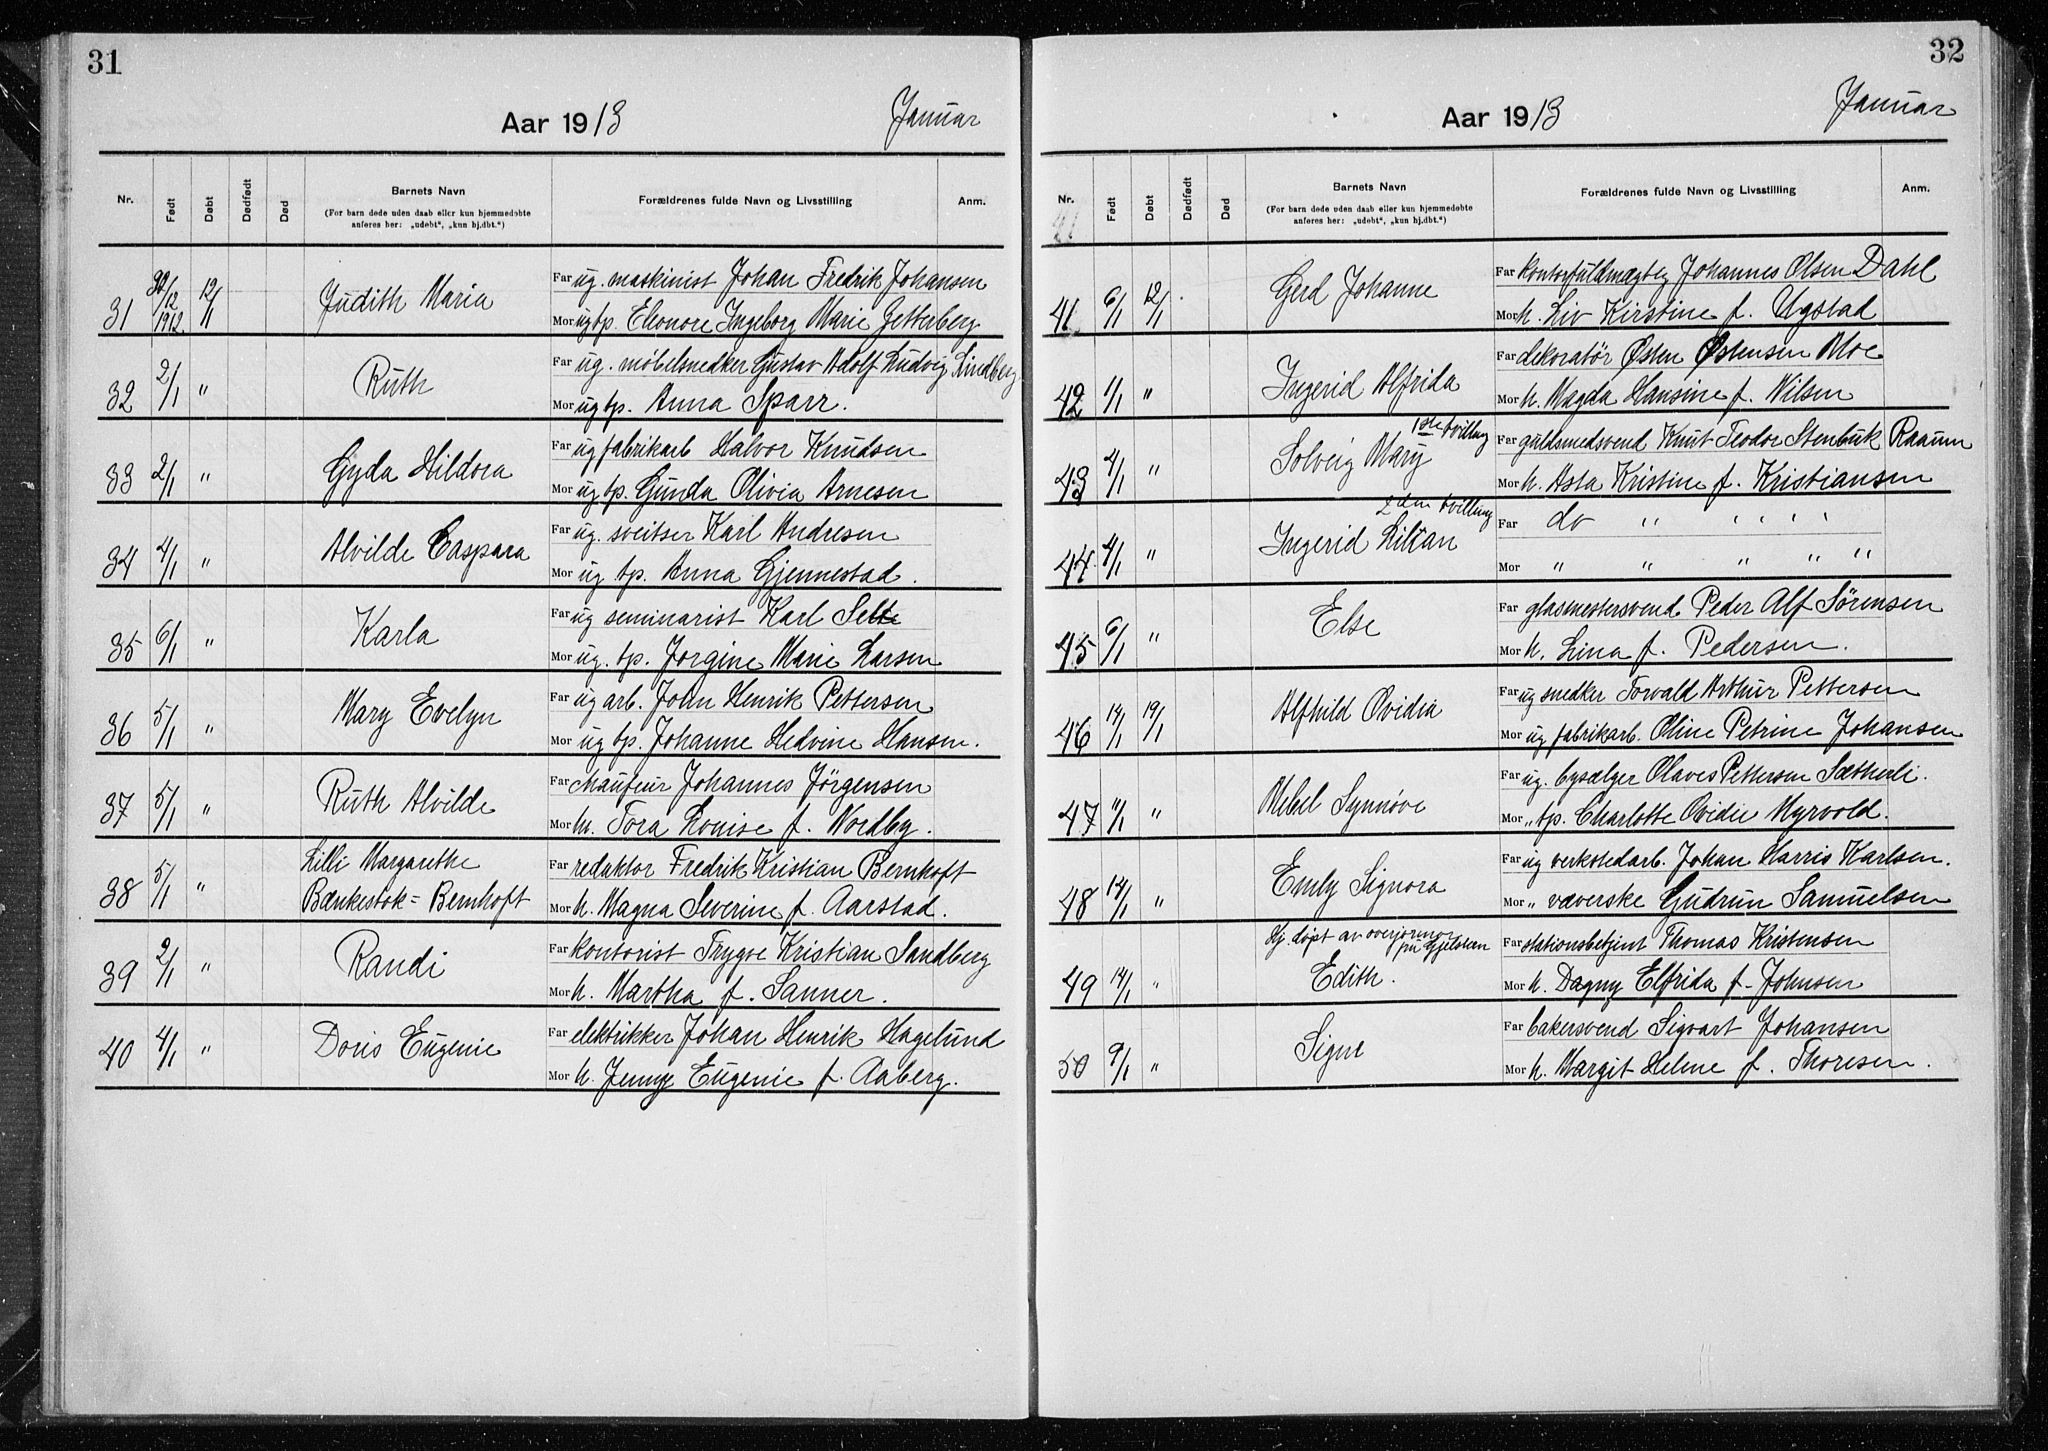 31
Aar 1913
Januar
Nr.
Født
Døbt
Dødfødt
Død
Barnets Navn
(For barn døde uden daab eller kun hjemmedøbte
anføres her: „udøbt", „kun hj.dbt.")
Forældrenes fulde Navn og Livsstilling
Anm.
31 30/12 1912. 12/1 Judith Maria
Far ug. maskinist Johan Fredrik Johansen
Mor ug tp. Elenore Ingeborg Marie Zetterberg
32 2/1 " Ruth
Far ug. møbelsnedker Gustav Adolf Ludvig Lindberg
Mor ug tp. Anna Sparr.
33 2/1 " Gyda Hildora
Far ug fabrikarb Halvor Knudsen
Mor ug tp. Gunda Olivia Arnesen
34 4/1 " Alvilde Caspara
Far ug. sveitser Karl Andresen
Mor ug tp. Anna Gjennestad.
35 6/1 " Karla
Far ug seminarist Karl Selte
Mor ug. tp. Jorgine Marie Larsen
36 5/1 " Mary Evelyn
Far ug arb. John Henrik Pettersen
Mor ug tp. Johanne Hedvine Hansen.
37 5/1 " Ruth Alvilde
Far chaufeur Johannes Jørgensen
Mor h. Tora Louise f. Nordby.
38 5/1 " Lilli Margarethe
Bænkestok=Bernhoft
Far redaktør Fredrik Kristian Bernhoft
Mor h. Magna Severine f. Aarstad.
39 2/1 " Randi
Far kontorist Trygve Kristian Sandberg
Mor h. Martha f. Sanner.
40 4/1 " Doris Eugenie
Far elektrikker Johan Henrik Hagelund
Mor h. Jenny Eugenie f. Aaberg.
32
Aar 1913
Januar
Nr.
41
Født
Døbt
Dødfødt
Død
Barnets Navn
(For barn døde uden daab eller kun hjemmedøbte
anføres her: „udøbt", „kun hj.dbt.")
Forældrenes fulde Navn og Livsstilling
Anm.
41 6/1 12/1 Gerd Johanne
Far kontorfuldmægtig Johannes Olsen Dahl
Mor h. Liv Kirstine f. Ugstad
42 1/1 " Ingerid Alfrida
Far dekoratør Østen Østensen Moe
Mor h. Magda Hansine f. Nilsen
1ste tvilling
43 4/1 " Solveig Mary
Far guldsmedsvend Knut Teodor Stenbuk Raaum
Mor h. Asta Kristine f. Kristiansen
2den tvilling
44 4/1 " Ingerid Lilian
Far do " " " "
Mor " " " " "
45 6/1 " Else
Far glasmestersvend Peder Alf Sørensen
Mor h. Lina f. Pedersen.
46 14/1 19/1 Alfhild Ovidia
Far ug snedker Torvald Arthur Pettersen
Mor ug fabrikarb. Oline Petrine Johansen
47 11/1 " Mebel Synnøve
Far ug. bysælger Olaves Pettersen Sætherli.
Mor " tp. Charlotte Ovidie Myrvold.
48 14/1 " Emly Signora
Far ug verkstedarb. Johan Harris Karlsen.
Mor " væverske Gudrun Samuelsen
Hj. døpt av overjormor
på Gjelsten
49 14/1 " Edith.
Far stationsbetjent Thomas Kristensen
Mor h. Dagny Elfrida f. Johnsen
50 9/1 " Signe
Far bakersvend Sigvart Johansen
Mor h. Margit Helene f. Thoresen.